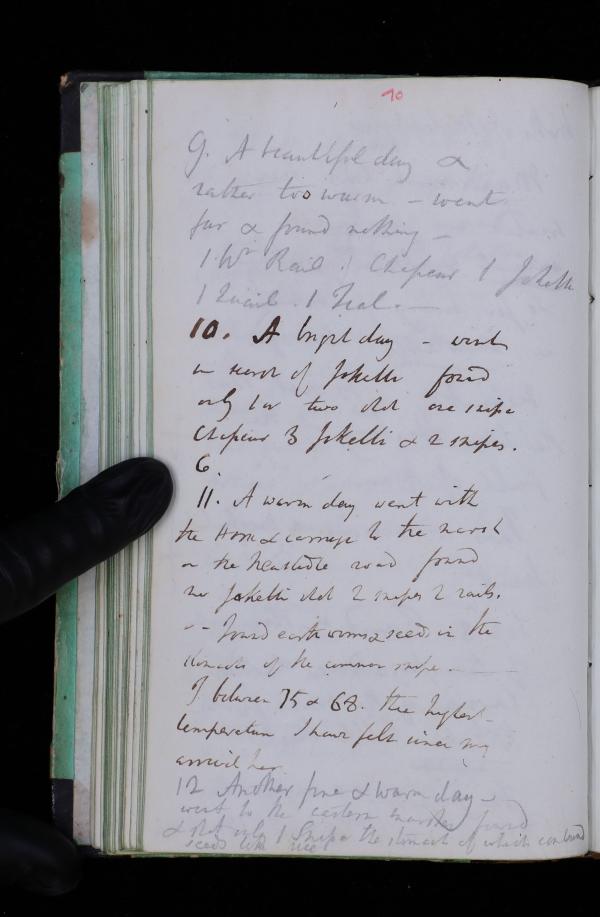 70
9. A beautiful day &
rather too warm - went
far & found nothing -
1 Wr Rail. Chasseur 1 Jokelli
1 Quail. 1 Teal. -
10. A bright day - went
in search of Jokelli found
only 1 or two shot one snipe
Chasseur 3 Jokelli & 2 snipes.
6.
11. A warm day went with
the Horse & carriage to the marsh
on the road found
no Jokelli shot 2 snipes 2 rails.
-- found earthworms & seeds in the
stomachs of the common snipe. -
T between 75 & 68. the highest
temperature I have felt since my
arrival here
12 Another fine & warm day -
went to the eastern marshes found
& shot only 1 snipe the stomach of which contained
seeds like rice